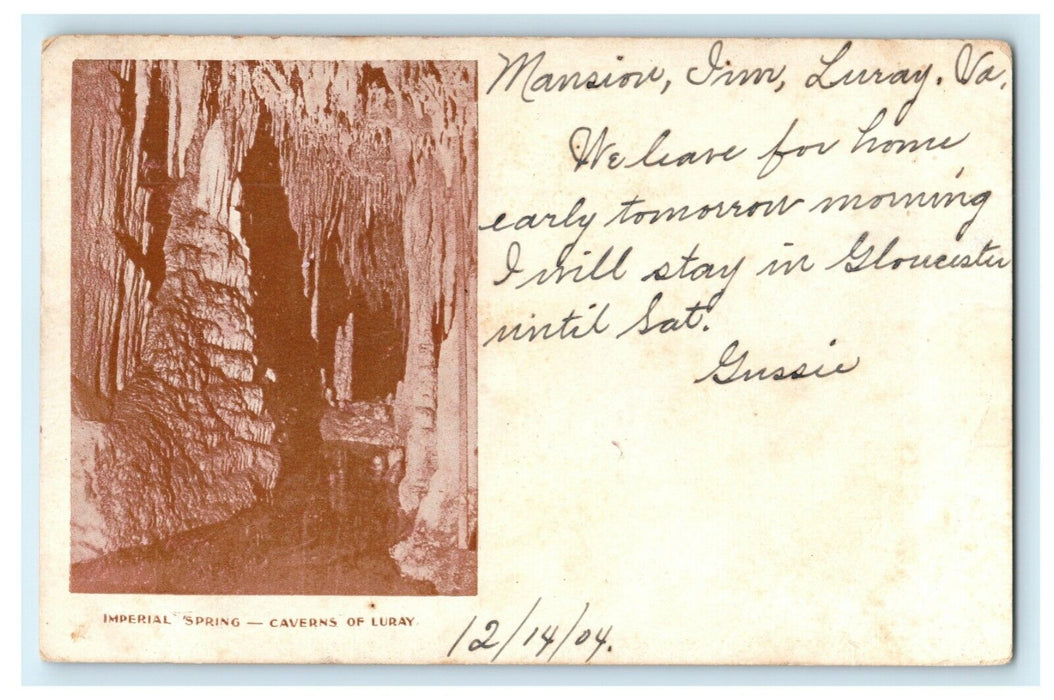 Mansion, Inn, Luray. Va.
We leave for home
early tomorrow morning
I will stay in Gloucester
until Sat.
Gussie
IMPERIAL SPRING — CAVERNS OF LURAY.
12/14/04.